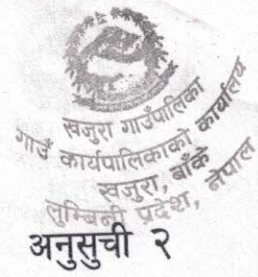 खजुरा गाउँपालिका
गाउँ कार्यपालिकाको कार्यालय
खजुरा, बाँके
लुम्बिनी प्रदेश, नेपाल
अनुसुची २